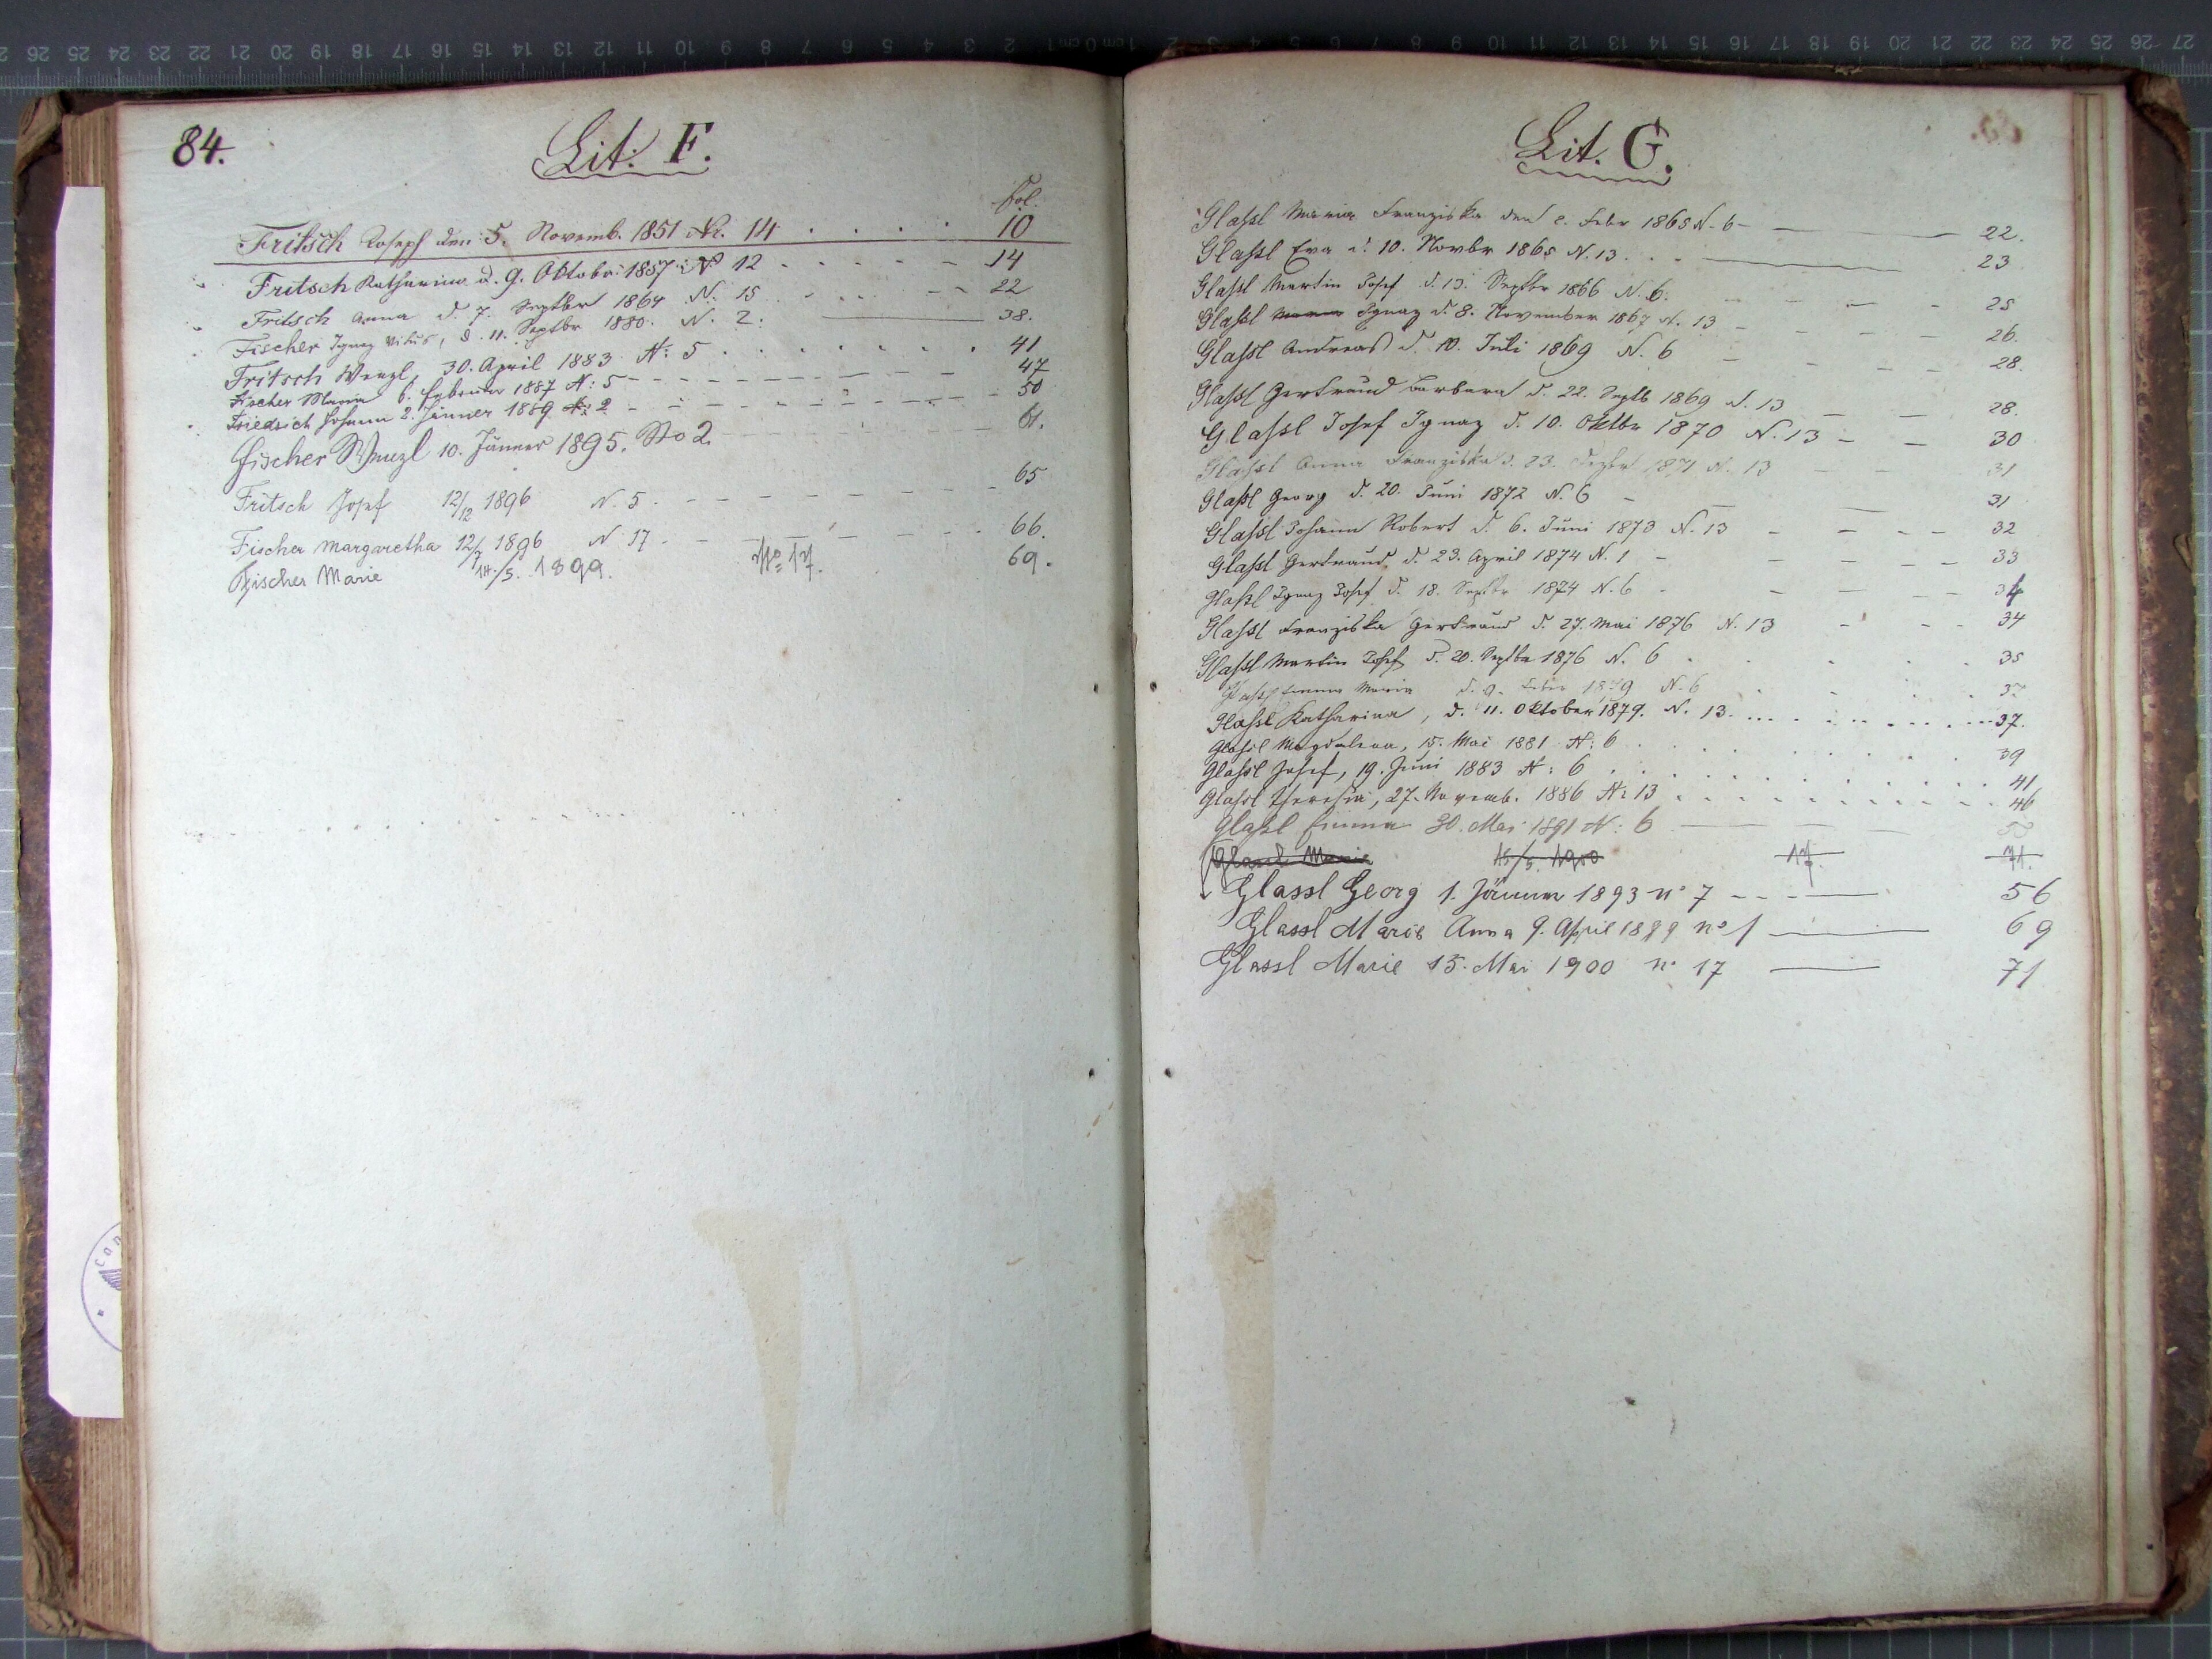 84.
Lit. F.
Fol.
Fritsch Joseph den 5. Novemb. 1851 Nr. 14 . . . . . 10
Fritsch Katharina d. 9. Oktobr: 1857 : N 12 - - - - - 14
Fritsch Anna d. 7. Septbr 1864 N. 15 - - - - - 22
Fischer Ignaz Vitus, d. 11. Septbr 1880. N. 2. 38.
Fritsch Wenzl, 30. April 1883 N: 5 . . . . . . . 41
Fischer Maria 6. Februar 1887 N: 5 - - - - - - - 47
Friedrich Johann 2. Jänner 1889 N: 2 - - - - - - - 50
Fischer Wenzl 10. Jänner 1895. No 2. 61.
Fritsch Josef 12/12 1896 N. 5. - - - - - - - 65
Fischer Margaretha 12/7 1896 N 17 - - - - - - 66.
Fischer Marie 14./5. 1899. No 17. 69.
Lit. G.
Glaßl Maria Franziska den 2. Febr 1865 N. 6 - 22.
Glaßl Eva d. 10. Novbr 1865 N. 13 . . . 23
Glaßl Martin Josef d. 13. Septbr 1866 N. 6. - - - - 25
Glaßl Maria Ignaz d. 8. November 1867 N. 13 - - - - 26.
Glaßl Andreas d. 10. Juli 1869 N. 6 - - - - 28.
Glaßl Gertraud Barbara d. 22. Septb 1869 N. 13 - - 28.
Glaßl Josef Ignaz d. 10. Oktbr 1870 N. 13 - - 30
Glaßl Anna Franziska d. 23. Septbr 1871 N. 13 - - 31
Glaßl Georg d. 20. Juni 1872 N. 6 - - - 31
Glaßl Johann Robert d. 6. Juni 1873 N. 13 - - - - 32
Glaßl Gertraud d. 23. April 1874 N. 1 - - - - - 33
Glaßl Ignaz Josef d. 18. Septbr 1874 N. 6 - - - - - 34
Glaßl Franziska Gertraud d. 27. Mai 1876 N. 13 - - - - 34
Glaßl Martin Josef d. 20. Septbr 1876 N. 6 . . . . . 35
Glaßl Emma Maria d. 9. Feber 1879 N. 6 . . . . . 37
Glaßl Katharina, d. 11. Oktober 1879. N. 13. . . . . . . 37.
Glaßl Magdalena, 15. Mai 1881 N: 6 . . . . . . . 39
Glaßl Josef, 19. Juni 1883 N: 6 . . . . . . . . 41
Glaßl Theresia, 27. Novemb. 1886 N: 13 . . . . . . . 46
Glaßl Emma 30. Mai 1891 N: 6
Glassl Marie 15/5. 1900 17. 71.
Glassl Georg 1. Jänner 1893 no 7 - - - 56
Glassl Marie Anna 9. April 1899 no 1 69
Glassl Marie 15. Mai 1900 no 17 71